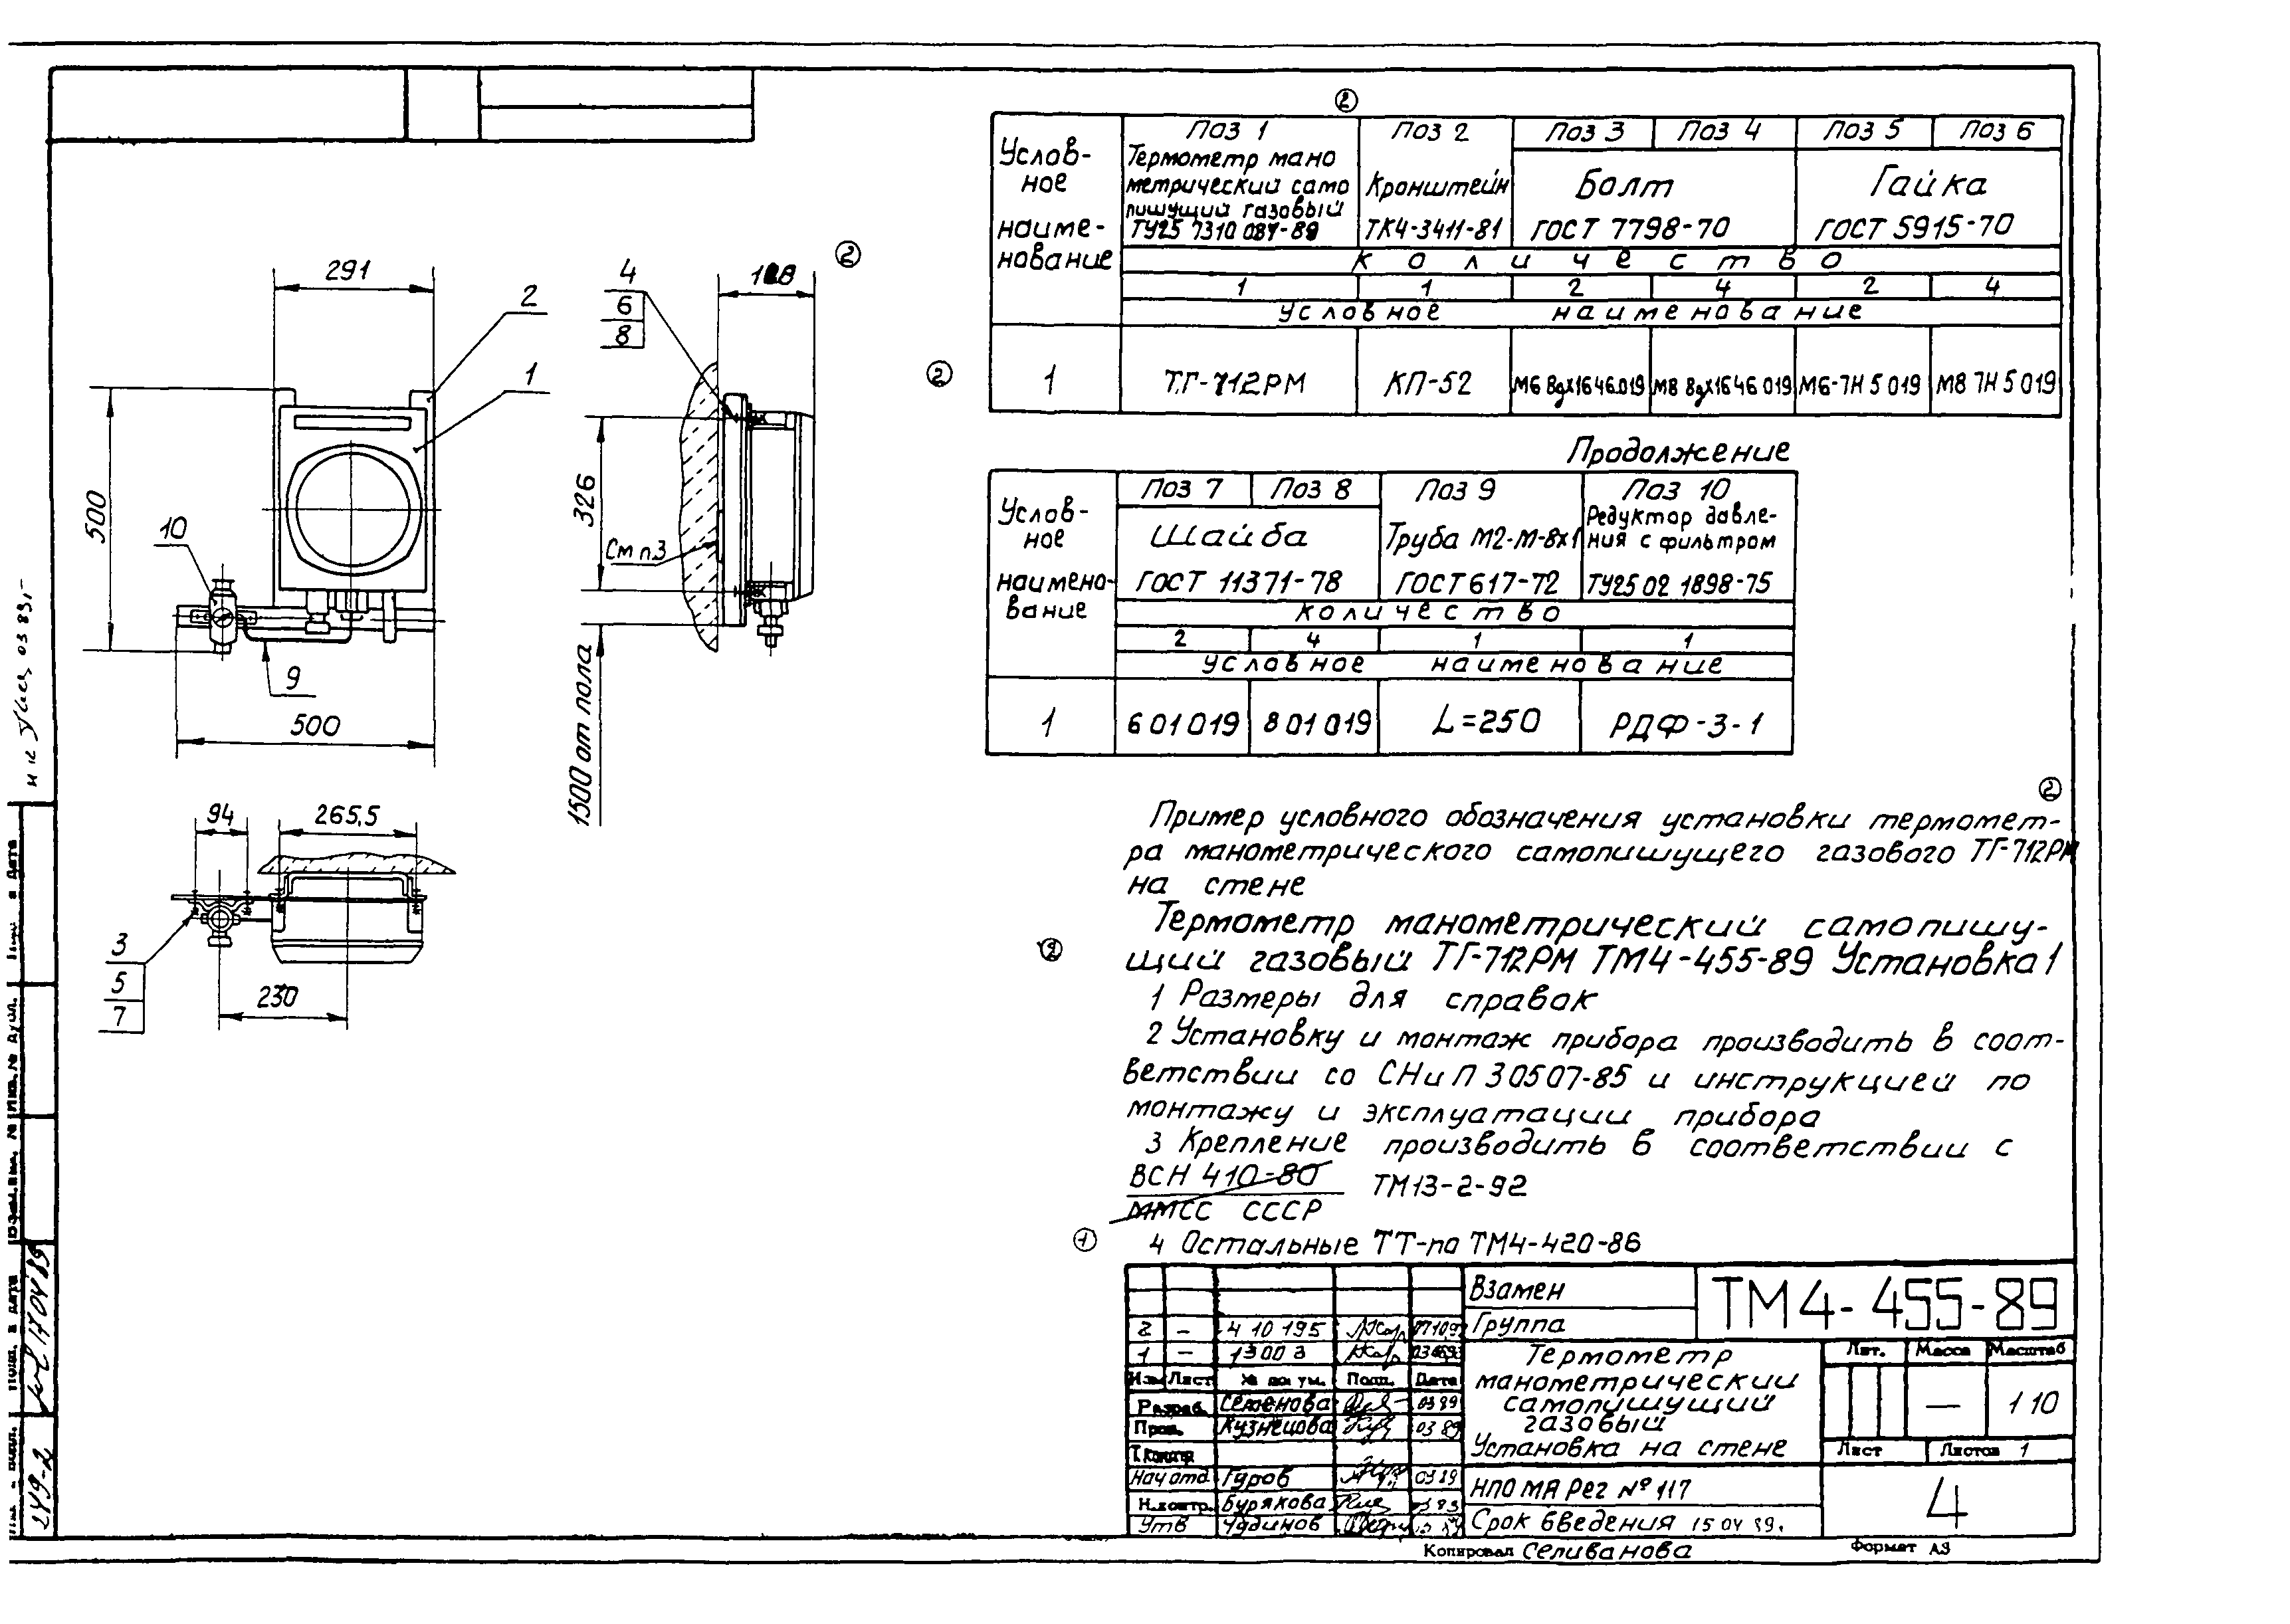 291
2
1
500
10
9
500
4
6
8
②
326
См п.3
1500 от пола
94
265,5
3
5
7
230
②
②
Услов-
ное
наиме-
нование
Поз 1
Термометр мано
метрический само
пишущий газовый
Поз 2
Кронштейн
ТК4-3411-81
Поз 3
Поз 4
Болт
ГОСТ 7798-70
Поз 5
Поз 6
Гайка
ГОСТ 5915-70
количество
1 1 2 4 2 4
условное наименование
1
ТГ-712РМ
КП-52
М6 8gх16 46.019
М8 8gх16 46 019
М6-7Н 5 019
М8 7Н 5 019
Продолжение
Услов-
ное
наимено-
вание
Поз 7
Поз 8
Шайба
ГОСТ 11371-78
Поз 9
Труба М2-М-8х1
ГОСТ 617-72
Поз 10
Редуктор давле-
ния с фильтром
ТУ25 02 1898-75
количество
2 4 1 1
условное наименование
1
6 01 019
8 01 019
L=250
РДФ-3-1
②
Пример условного обозначения установки термомет-
ра манометрического самопишущего газового ТГ-712РМ
на стене
Термометр манометрический самопишу-
②
щий газовый ТГ-712РМ ТМ4-455-89 Установка 1
1 Размеры для справок
2 Установку и монтаж прибора производить в соот-
ветствии со СНиП 3 05 07-85 и инструкцией по
монтажу и эксплуатации прибора
3 Крепление производить в соответствии с
ВСН 410-80
ММСС СССР
ТМ13-2-92
①
4 Остальные ТТ-по ТМ4-420-86
Взамен
Группа
ТМ4-455-89
2 – 4 10 195
1 –
Изм Лист № докум. Подп. Дата
Разраб. Семенова 03 89
Пров. Кузнецова 03 89
Т.контр
Нач отд Гуров
Н.контр. Бурякова
Утв Чудинов
Термометр
манометрический
самопишущий
газовый
Установка на стене
Лит. Масса Масштаб
— 1 10
Лист
Листов 1
НПО МА Рег № 117
Срок введения 15 04 89.
4
Копировал Селиванова
Формат А3
249-2